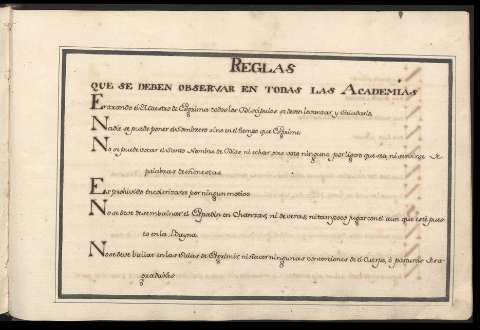 REGLAS
QUE SE DEBEN OBSERVAR EN TODAS LAS ACADEMIAS
Entrando el Maestro de Esgrima todos los Discipulos se deven levantar, y saludarle.
Nadie se puede poner el Sombrero sino en el tiempo que Esgrime
No se puede tocar el Santo Nombre de Dios, ni echar otro voto ninguno, por ligero que sea, ni
palabras deshonestas.
Es prohivido encolerizarse por ningun motivo
No se deve desembainar el Espadin en Chanzas, ni de veras, ni tampoco jugar con el aun que esté pues
to en la Bayna.
No se deve bailar en las Salas de Esgrimir, ni hacer ningunas contorsiones de el Cuerpo, ò posturas desa
gradables